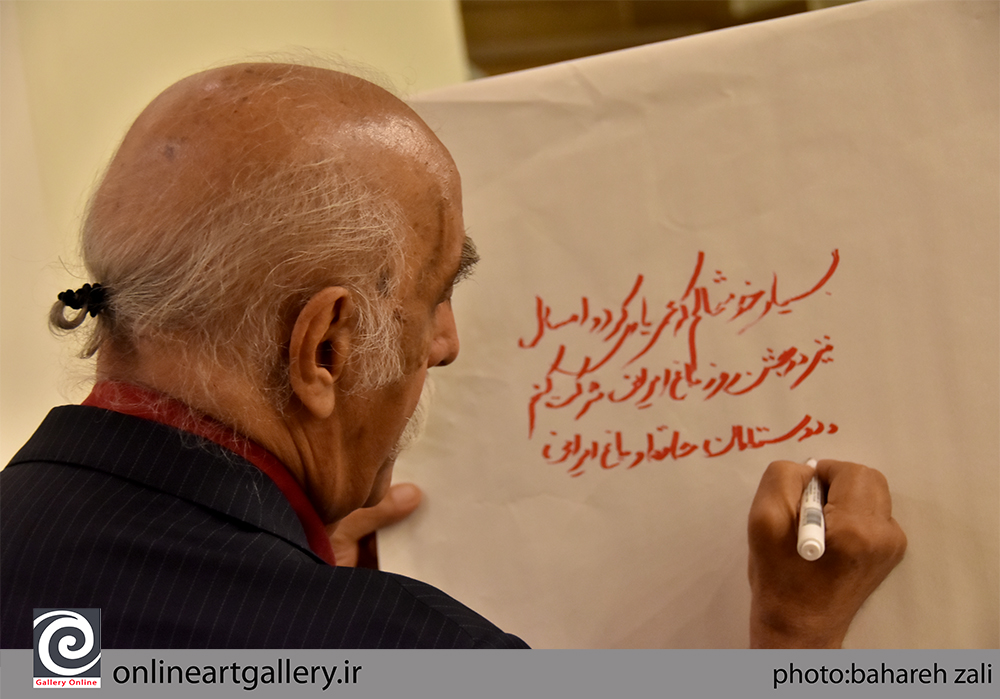 بسیار خوشحالم که عمر یاری کرد امسال
نیز در جشن روز باغ ایرانی شرکت کنم
و دوستان باغ ایرانی
Gallery Online
onlineartgallery.ir
photo:bahareh zali